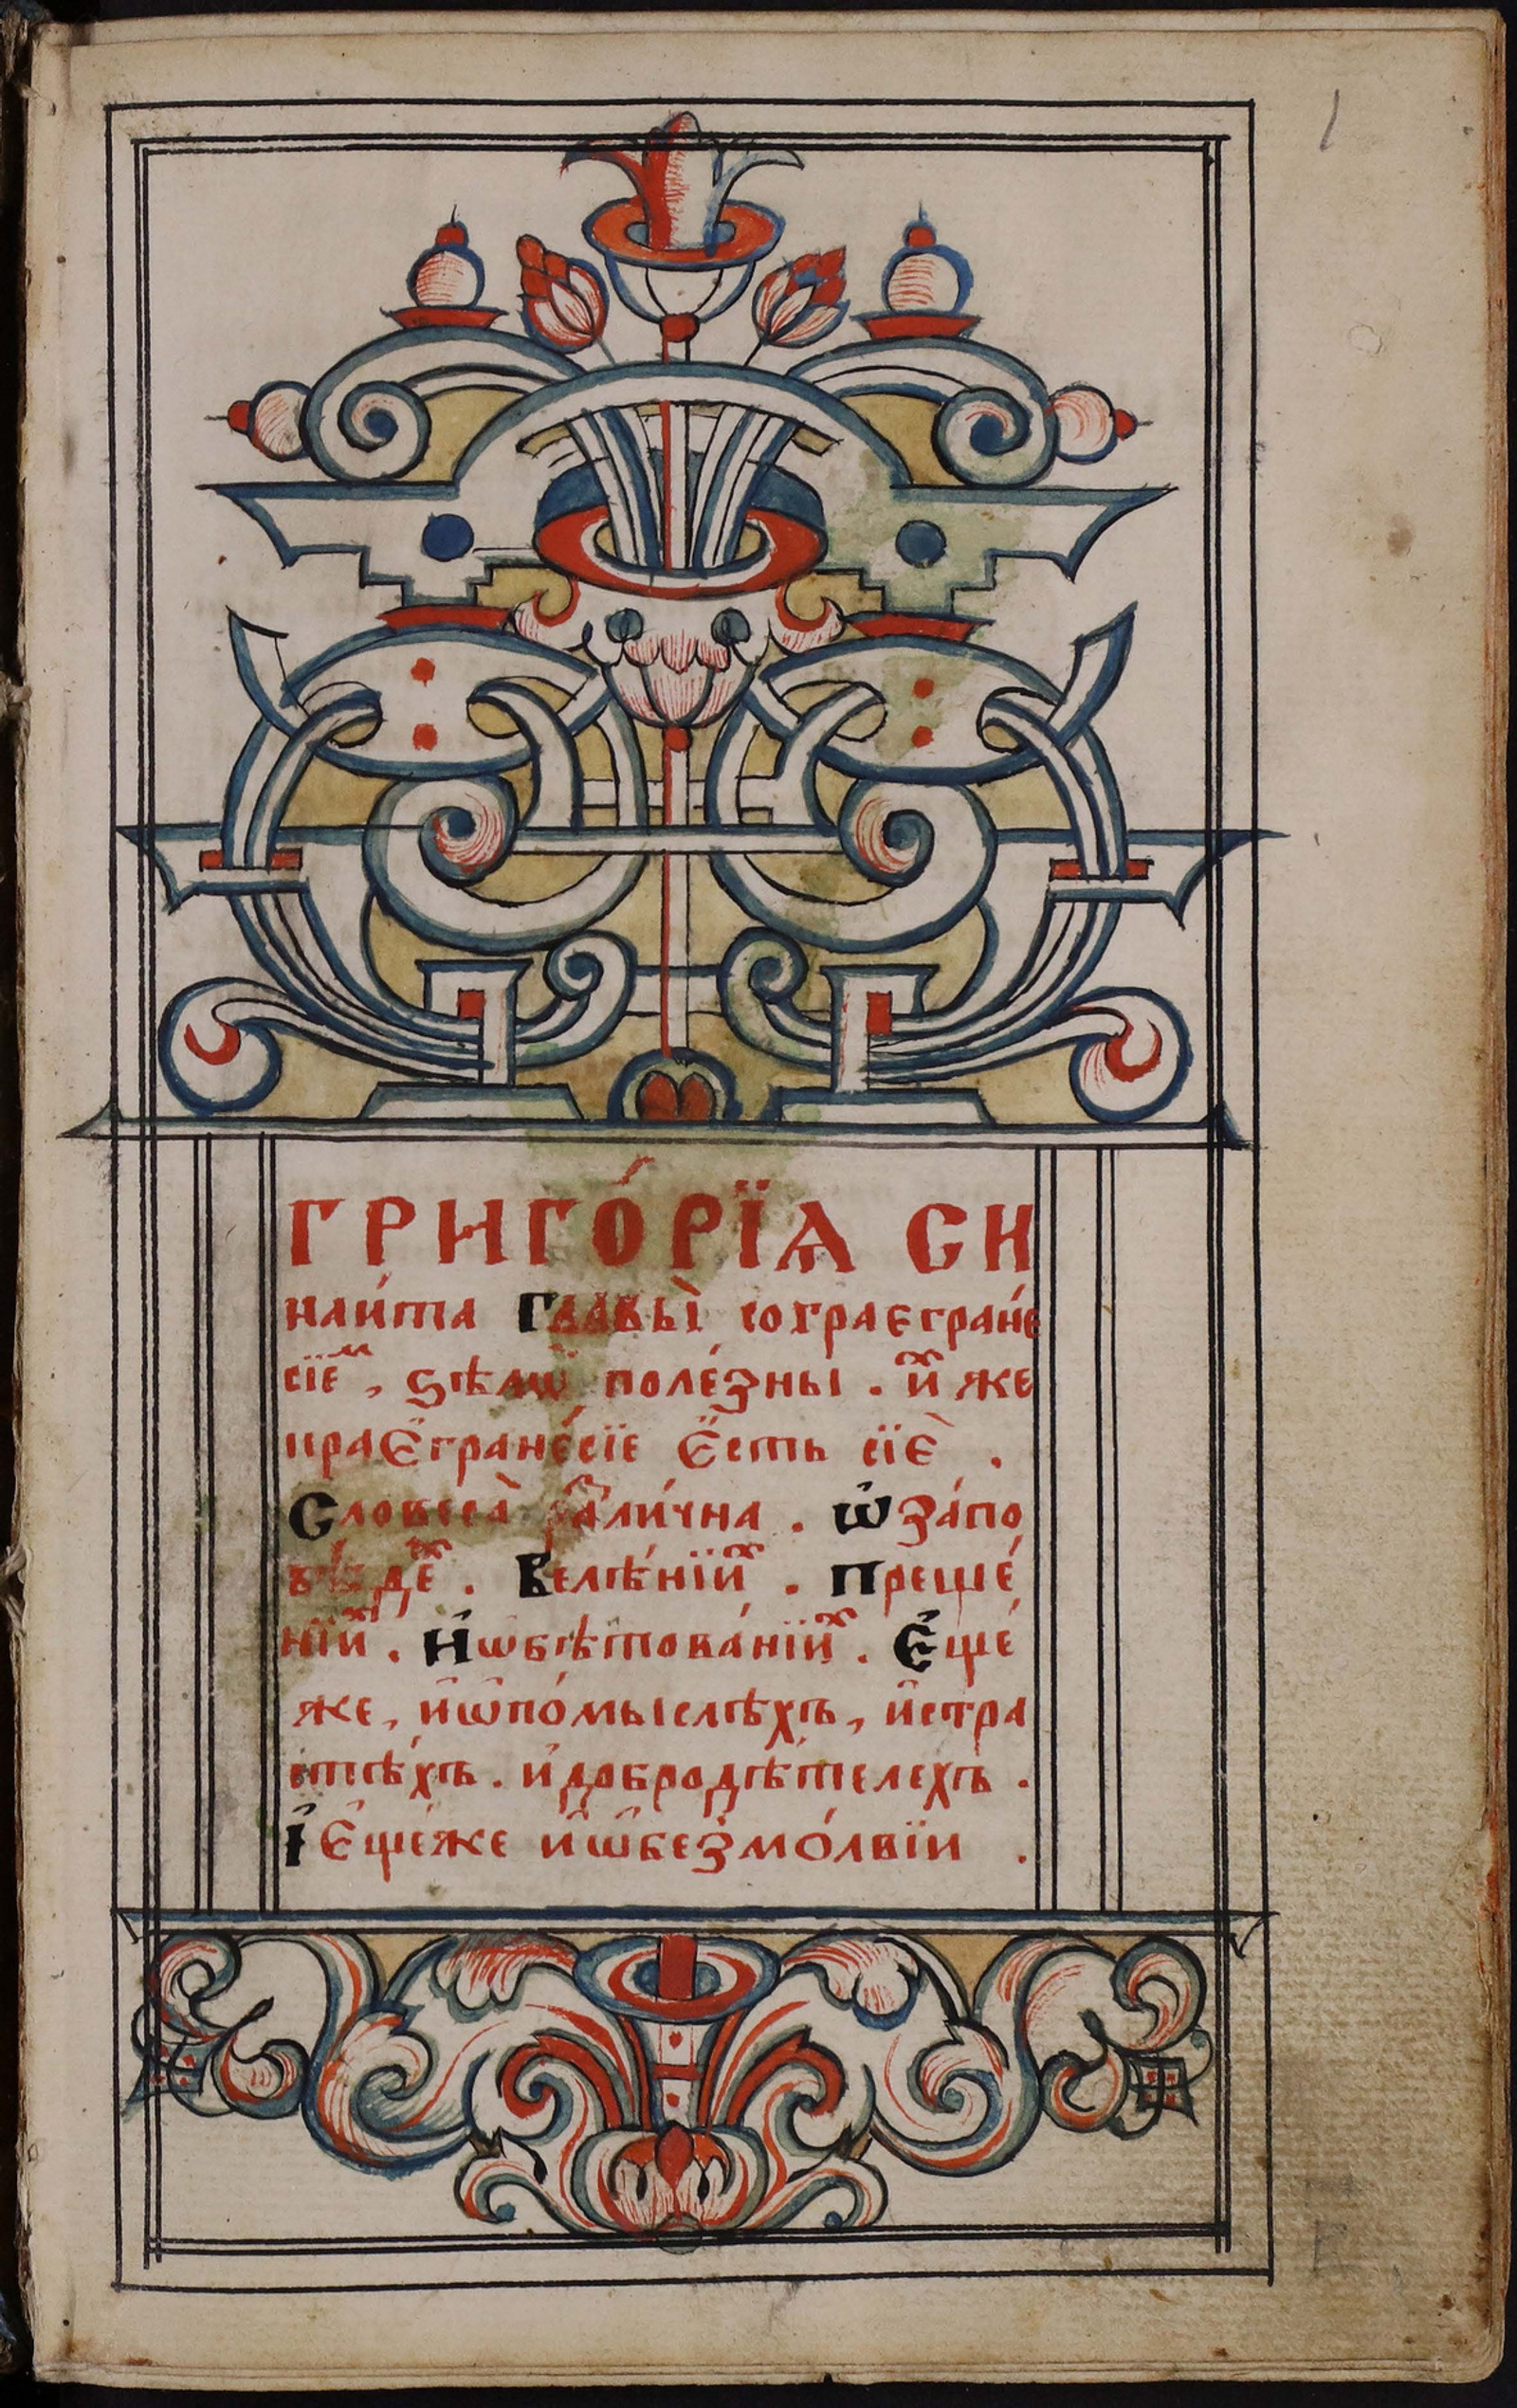 1
ГРИГО́РЇѦ СИ
наи́та Главы̀ сохраегране́
сїеⷨ, ѕѣлѡ̀ поле́зны. и҆ⷯ же
краегране́сїе є҆́сть сїѐ.
Словеса̀ разли́чна. ѡ҆ за́по
вѣдеⷯ. Велѣ́нїиⷯ. Преще́
нїиⷯ. И҆ ѡбѣтова́нїиⷯ. Є҆ще́
же, и҆ ѡ҆ по́мыслѣхъ, и҆ стра
стѣ́хъ. и҆ добродѣ́телехъ.
І҆ є҆ще́же и҆ ѡ҆ безмо́лвїи.